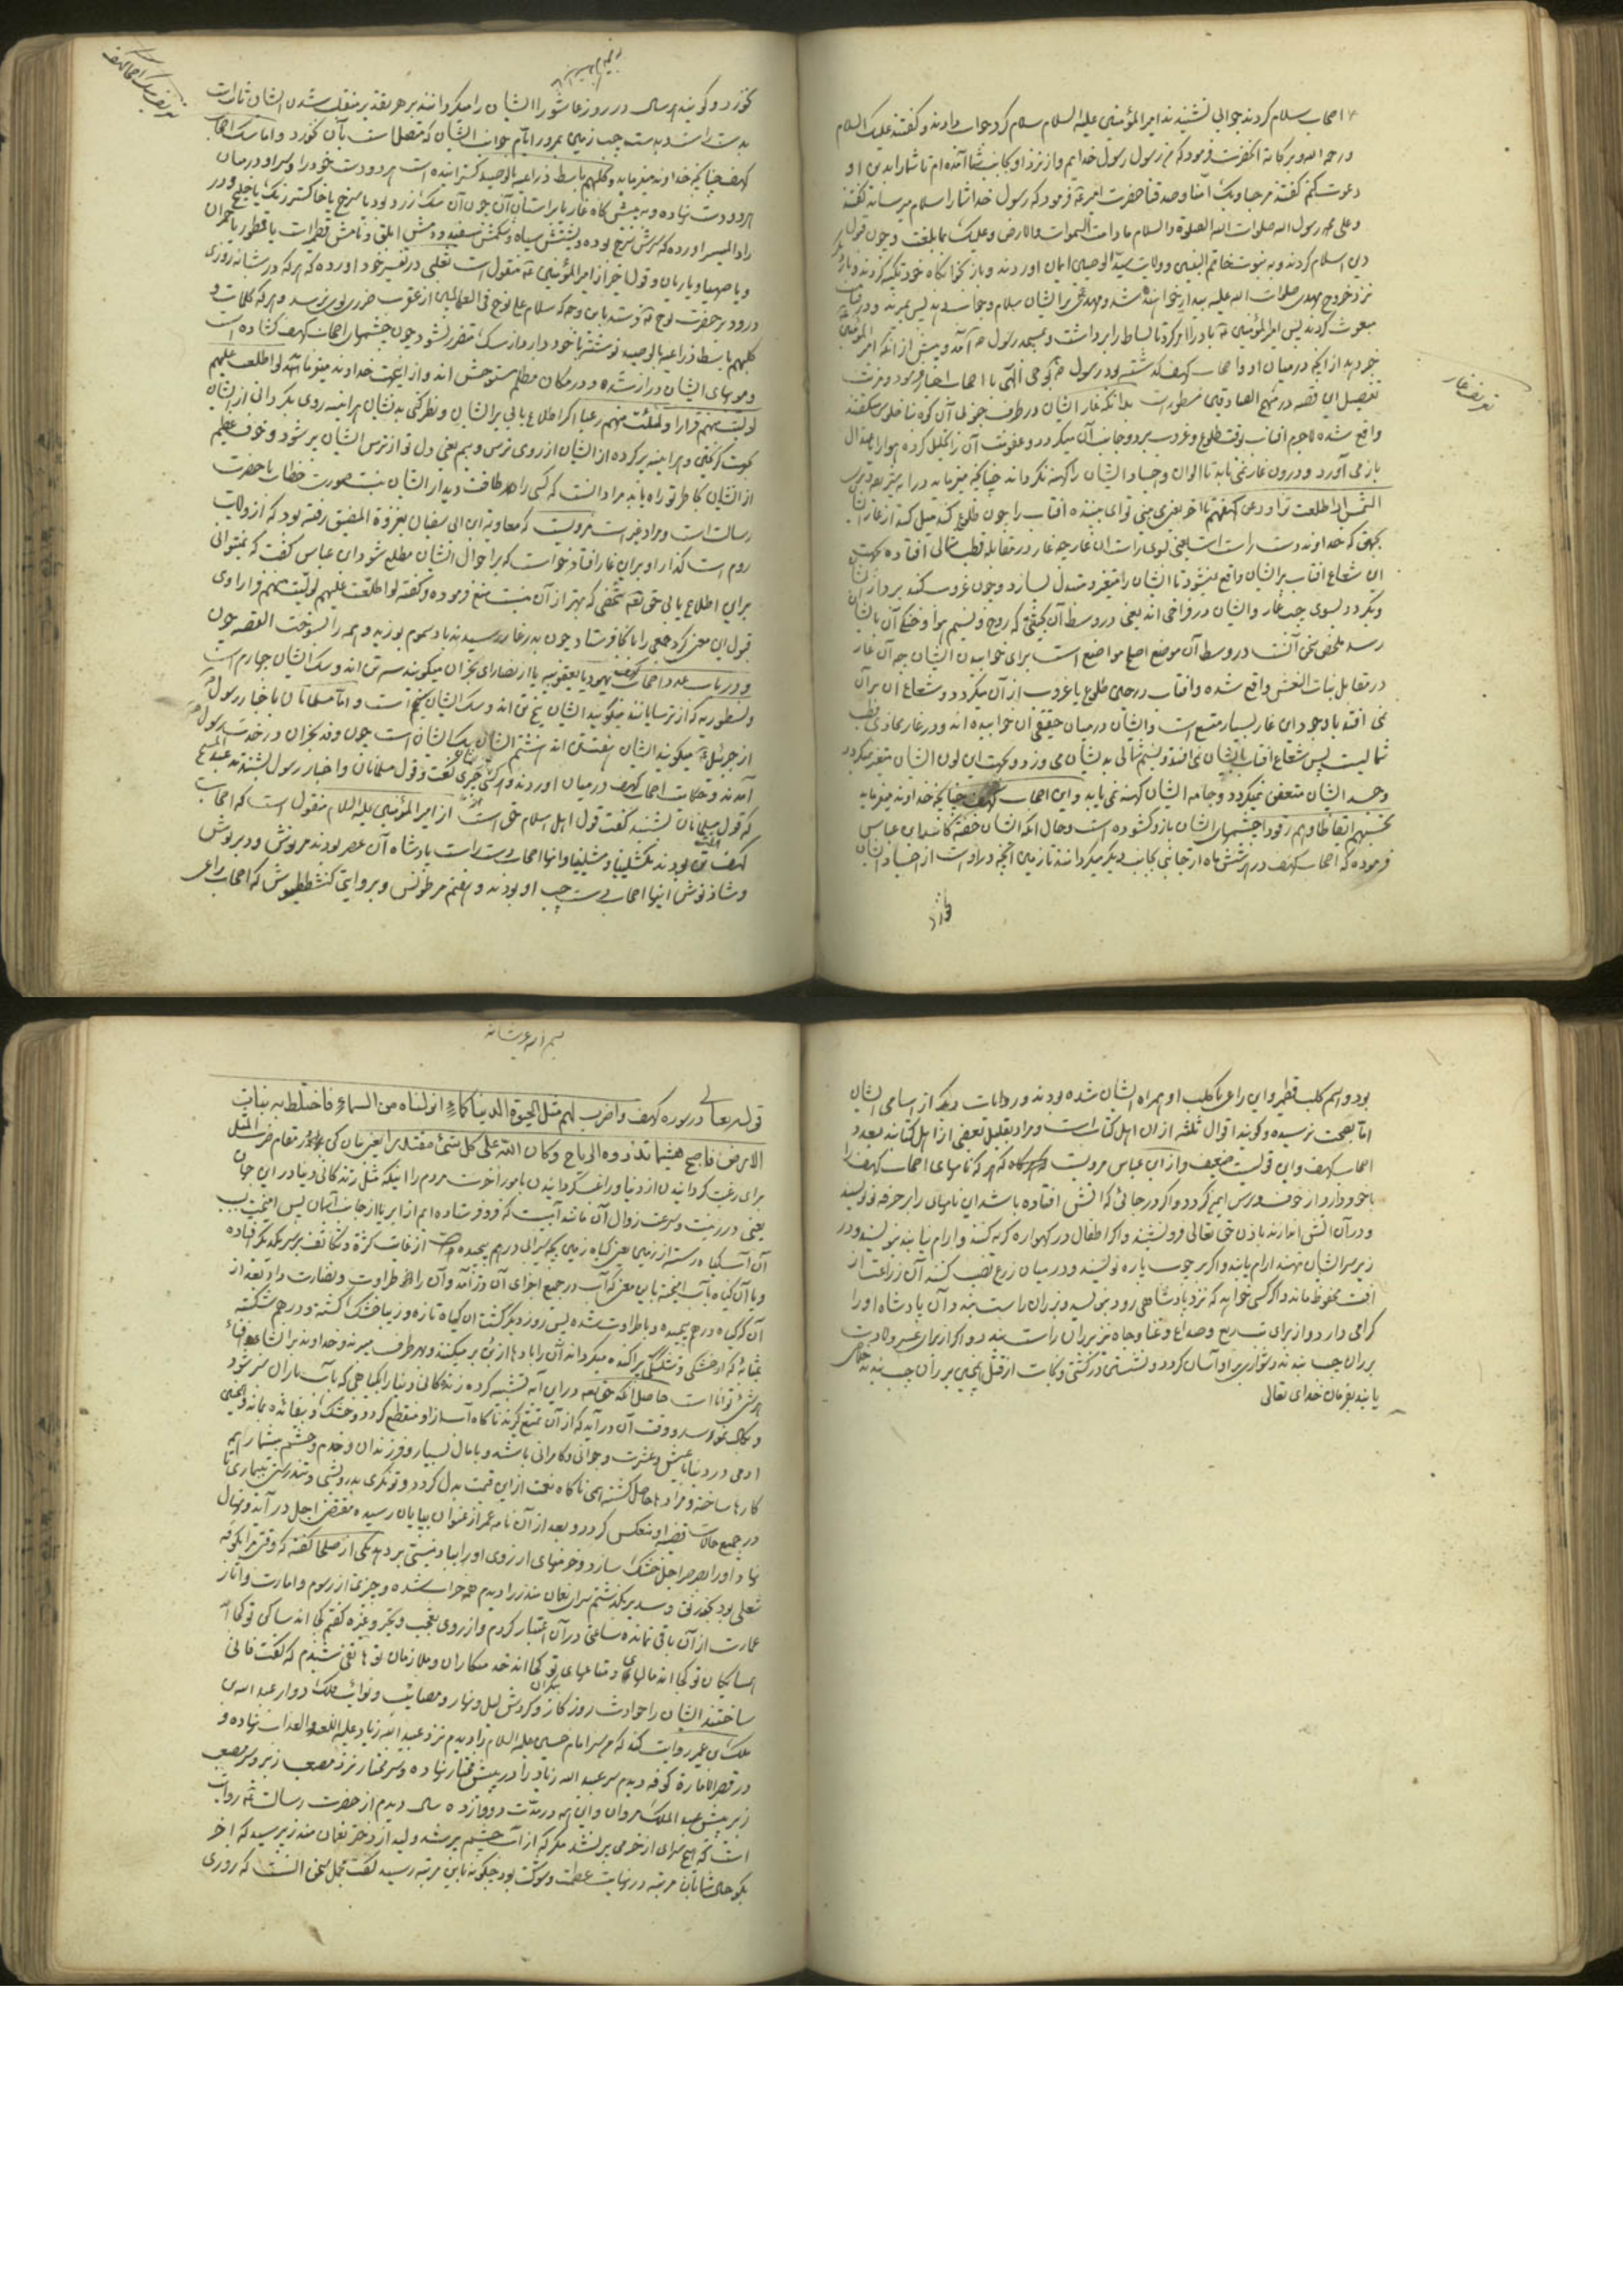 اصحاب سلام کردند جوابی نشنیدند امیر المؤمنین علیه السلام سلام کرد جواب دادند و گفتند علیک السلام
و رحمة الله و برکاته آنحضرت فرمود که من رسول رسول خدایم و از نزد او بجانب شما آمده ام تا شما را بدین او
دعوت کنم گفتند مرحبا وبک آمنا و صدقنا حضرت امیر فرمود که رسول خدا شما را سلام میرساند گفتند
و علی محمد رسول الله صلوات الله الصلوة والسلام ما دامت السموات والارض و علیک بما بلغت و چون قبول
دین اسلام کردند و به نبوت خاتم النبیین و ولایت سید الوصیین ایمان آوردند و باز بخوابگاه خود تکیه کردند و بار دیگر
نزد خروج مهدی صلوات الله علیه بیدار خواهند شد و مهدی بر ایشان سلام و جواب دهند پس بمیرند و در قیامت
مبعوث گردند پس امیر المؤمنین باد را امر کرد تا بساط را برداشت و بمسجد رسول آمد و پیش از آنکه امیر المؤمنین
خبر دهد از آنچه در میان او و اصحاب کهف گذشته بود رسول بوحی الهی با اصحاب اخبار فرمود
تفصیل این قصه در منهج الصادقین مسطور است بدانکه غار ایشان در طرف جنوبی آن کوه بناخلوس
واقع شده لاجرم آفتاب بوقت طلوع و غروب بر دو جانب آن میگردد و عفونت آن را تحلیل کرده هوا را باعتدال
باز می آورد و درون غار نمی تابد تا الوان و اجساد ایشان را کهنه نگرداند چنانچه میفرماید و تری
الشمس اذا طلعت تزاور عن کهفهم تا آخر یعنی می بینی تو ای بیننده آفتاب را چون طلوع کند میل کند از غار ایشان
بجهتی که خداوند دست راست است یعنی بسوی راست آن غار چه غار در مقابله قطب شمالی افتاده بجهت
آن شعاع آفتاب بر ایشان واقع نمیشود تا ایشان را متغیر و متبدل نسازد و چون غروب کند ببرد از ایشان
و بگردد بسوی چپ غار و ایشان در فراخی اند یعنی در وسط آن بکیفیتی که روح و نسیم هوا و خنکی آن بایشان
رسد ملخص سخن آنست در وسط آن موضع اصلح مواضع است برای خوابیدن ایشان چه آن غار
در مقابل بنات النعش واقع شده و آفتاب در حین طلوع یا غروب از آن میگردد و شعاع آن بر آن
نمی افتد با وجود این غار بسیار متسع است و ایشان در میان حقیقی آن خوابیده اند و در غار محاذی قطب
شمالیست پس شعاع آفتاب بایشان نمی افتد و نسیم شمالی بدیشان می وزد و بجهت این لون ایشان متغیر نمیگردد
و جسد ایشان متعفن نمیگردد و جامه ایشان کهنه نمی یابد و این اصحاب کهف چنانچه خداوند میفرماید
تحسبهم ایقاظا وهم رقود چشمهای ایشان باز و گشوده است و حال آنکه ایشان خفتگانند ابن عباس
فرموده که اصحاب کهف در هر شش ماه از جانبی بجانب دیگر میگردانند تا زمین آنچه در اوست از اجساد ایشان
تعریف غار
نخورد و گویند هر سال در روز عاشورا ایشان را میگردانند بر هر تقدیر منقلب شدن ایشان
بدست راست و بدست چپ زمین بمرور ایام جوانب ایشان که متصل است بآن نخورد و اما سگ اصحاب
کهف چنانچه خداوند میفرماید و کلبهم باسط ذراعیه بالوصید گسترانیده است هر دو دست خود را و سر او در میان
هر دو دست نهاده و به پیش گاه غار یا بر آستان آن چون آن سگ زرد بود یا سرخ یا خاکستر رنگ یا خلنج و در
زاد المسیر آورده که سرش سرخ بوده و پشتش سیاه و شکمش سفید و دمش ابلق و نامش قطمیر است یا قطور یا حمران
و یا صهبا و یا ریان و قول اخیر از امیر المؤمنین منقول است ثعلبی در تفسیر خود آورده که هر که در شبانه روزی
درود بر حضرت نوح فرستد باین وجه که سلام علی نوح فی العالمین از عقرب ضرری بوی نرسد و هر که کلمات و
کلبهم باسط ذراعیه بالوصید نوشته با خود دارد از سگ متضرر نشود چون چشمهای اصحاب کهف گشاده است
و مویهای ایشان دراز شده و در مکان مظلم متوحش اند و از اینجهت خداوند میفرماید لو اطلعت علیهم
لولیت منهم فرارا ولملئت منهم رعبا اگر اطلاع یابی بر ایشان و نظر کنی بدیشان هرآینه روی بگردانی از ایشان
بجهت گریختن و هرآینه پر کرده از ایشان از روی ترس و بیم یعنی دل تو از ترس ایشان پر شود و خوف عظیم
از ایشان بخاطر تو راه یابد مراد آنست که کسی را حد طاقت دیدار ایشان نیست صورت خطاب با حضرت
رسالت است و مراد غیر است مرویست که معاویة ابن ابی سفیان بغزوة المضیق رفته بود که از ولایت
روم است گذار او بر آن غار افتاد خواست که بر احوال ایشان مطلع شود ابن عباس گفت که نمیتوانی
بر این اطلاع یابی حق تعالی شخصی که بهتر از آن منست منع فرموده و گفته لو اطلعت علیهم لولیت منهم فرارا وی
قبول این معنی نکرد جمعی را بآنجا فرستاد چون بدر غار رسیدند باد سموم بوزید و همه را بسوخت القصه چون
و در باب عدد اصحاب کهف یهود یا یعقوبیه یا از نصارای نجران میگویند سه تن اند و سگ ایشان چهارم است
و نسطوریه که از ترسایانند میگویند ایشان پنج تن اند و سگ ایشان ششم است و اما مسلمانان باخبار رسول
از جبرئیل میگویند ایشان هفتن اند هشتم ایشان سگ ایشان است چون وفد نجران در خدمت رسول
آمدند و حکایت اصحاب کهف در میان آوردند و هر کس چیزی گفت و قول مسلمانان و اخبار رسول شنیدند عبد المسیح
که قول مسلمانان شنید گفت قول اهل اسلام حق است از امیر المؤمنین علیه السلام منقول است که اصحاب
کهف هفت تن بودند یملیخا و مکشلینا و مشلینا و اینها اصحاب دست راست پادشاه آن عصر بودند مرنوش و دبرنوش
و شاذنوش اینها اصحاب دست چپ او بودند و هفتم مرطونس و بروایتی کفشططیوش که اصحاب راعی
تعریف سگ اصحاب کهف
بود و اسم کلب قطمیر و این راعی با کلب او همراه ایشان شده بودند و روایات دیگر از اسامی ایشان
اما بصحت نرسیده و گویند اقوال ثلثه از آن اهل کتاب است و مراد بقلیل بعضی از اهل کتابند بعدد
اصحاب کهف و این قولیست ضعیف و از ابن عباس مرویست که هر که نامهای اصحاب کهف را
با خود دارد از خوف و ترس ایمن گردد و اگر در جائی که آتش افتاده باشد این نامها را بر خرقه نویسند
و در آن آتش اندازند باذن حق تعالی فرو نشیند و اگر اطفال در گهواره گریه کنند و آرام نیابند بنویسند و در
زیر سر ایشان نهند آرام یابند و اگر بر چوب پاره نویسند و در میان زرع نصب کنند آن زراعت از
آفت محفوظ ماند و اگر کسی خواهد که نزد پادشاهی رود بنویسد و بر ران راست بندد آن پادشاه او را
گرامی دارد و از برای تب ربع و صداع و غنا و جاه نیز بر ران راست بندد و اگر از برای عسر ولادت
بر ران چپ بندند دشوار بر او آسان گردد و نشستن در کشتی و نجات از قتل همچنین بر ران چپ بندند خلاص
یابند بفرمان خدای تعالی
قوله تعالی در سوره کهف واضرب لهم مثل الحیوة الدنیا کماء انزلناه من السماء فاختلط به نبات
الارض فاصبح هشیما تذروه الریاح وکان الله علی کل شئ مقتدرا یعنی بیان کن در مقام ضرب المثل
برای رغبت گردانیدن از دنیا و راغب گردانیدن بامور آخرت مردم را اینکه مثل زندگانی دنیا در این جهان
یعنی در زینت و سرعت زوال آن مانند آبیست که فرو فرستاده ایم از ابر یا از جانب آسمان پس آمیخته
آن آب گیاه رسته از زمین
و با آن گیاه بآب آمیخته باین معنی که آب در جمیع اجزای آن در آمد و آن را طراوت و نضارت داد بعد از
آن که گیاه درهم پیچیده و با طراوت شده پس روز دیگر گشت آن گیاه تازه و زیبا خشک گشته و درهم شکسته
بمثابۀ که از خشکی و شکستگی پراکنده میگرداند آن را بادها و بهر طرف میبرند و خداوند بر انشا و افناء
هر شئ تواناست حاصل آنکه حق تعالی در این آیه تشبیه کرده زندگانی دنیا را بگیاهی که بآب باران سرسبز شود
و بکمال نمو رسد و وقت آن در آید که از آن تمتع گیرند ناگاه آب از او منقطع گردد و خشک و بیفایده بماند و همچنین
آدمی در دنیا با عیش و عشرت و جوانی و کامرانی باشد و با مال بسیار و فرزندان و خدم و حشم بیشمار همه
کارها ساخته و مرادها حاصل گشته همی ناگاه نعمت از این قسمت بدل گردد و توانگری بدرویشی و تندرستی به بیماری
در جمیع حالات قضیه او منعکس گردد و بعد از آن نامه عمر از عنوان بپایان رسیده مقراض اجل در آید و نهال
نهاد او را بصرصر اجل خشک سازد و خرمنهای آرزوی او را بباد نیستی بر دهد یکی از صلحا گفته که وقتی مرا بکوفه
شغلی بود بخورنق و سدیر بگذشتم سرای نعمان منذر را دیدم همه خراب شده و چیزی از رسوم و امارت و آثار
عمارت از آن باقی نمانده ساعتی در آن اعتبار کردم و از روی تعجب و غیره گفتم کجا اند ساکنان تو کجا اند
همسایگان تو کجا اند مالهای و متاعهای تو کجا اند خدمتکاران و ملازمان تو هاتفی شنیدم که گفت فانی
ساختند ایشان را حوادث روزگار و گردش لیل و نهار و مصایب و نوائب فلک دوار عبد الله بن
ملک بن عمیر روایت کند که من سر امام حسین علیه السلام را دیدم نزد عبید الله زیاد علیه اللعنه والعذاب نهاده و
در قصر الاماره کوفه دیدم سر عبید الله زیاد را در پیش مختار نهاده و سر مختار نزد مصعب زبیر و سر مصعب
زبیر پیش عبد الملک مروان و این همه در مدت دوازده سال دیدم از حضرت رسالت روایت
است که هیچ سرای از خرمی پر نشد مگر که از آب چشم پر شد ولید از دختر نعمان منذر پرسید که آخر
بگو حال شما بآن مرتبه در نهایت عظمت و شوکت بود چگونه باین مرتبه رسید گفت مجمل سخن آنست که روزی